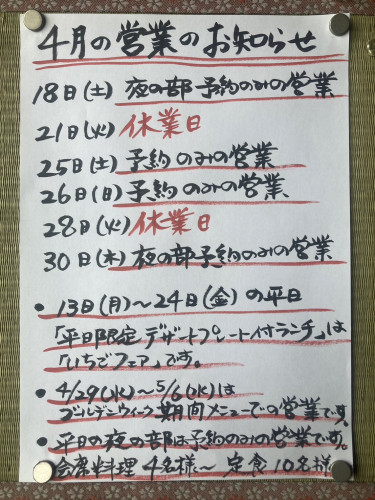 4月の営業のお知らせ
18日(土) 夜の部予約のみの営業
21日(火) 休業日
25日(土) 予約のみの営業
26日(日) 予約のみの営業
28日(火) 休業日
30日(木) 夜の部予約のみの営業
• 13日(月)〜24日(金)の平日
「平日限定デザートプレート付ランチ」は
「いちごフェア」です。
• 4/29(水)〜5/6(水)は
ゴールデンウィーク期間メニューでの営業です。
• 平日の夜の部は予約のみの営業です。
会席料理4名様〜 定食10名様